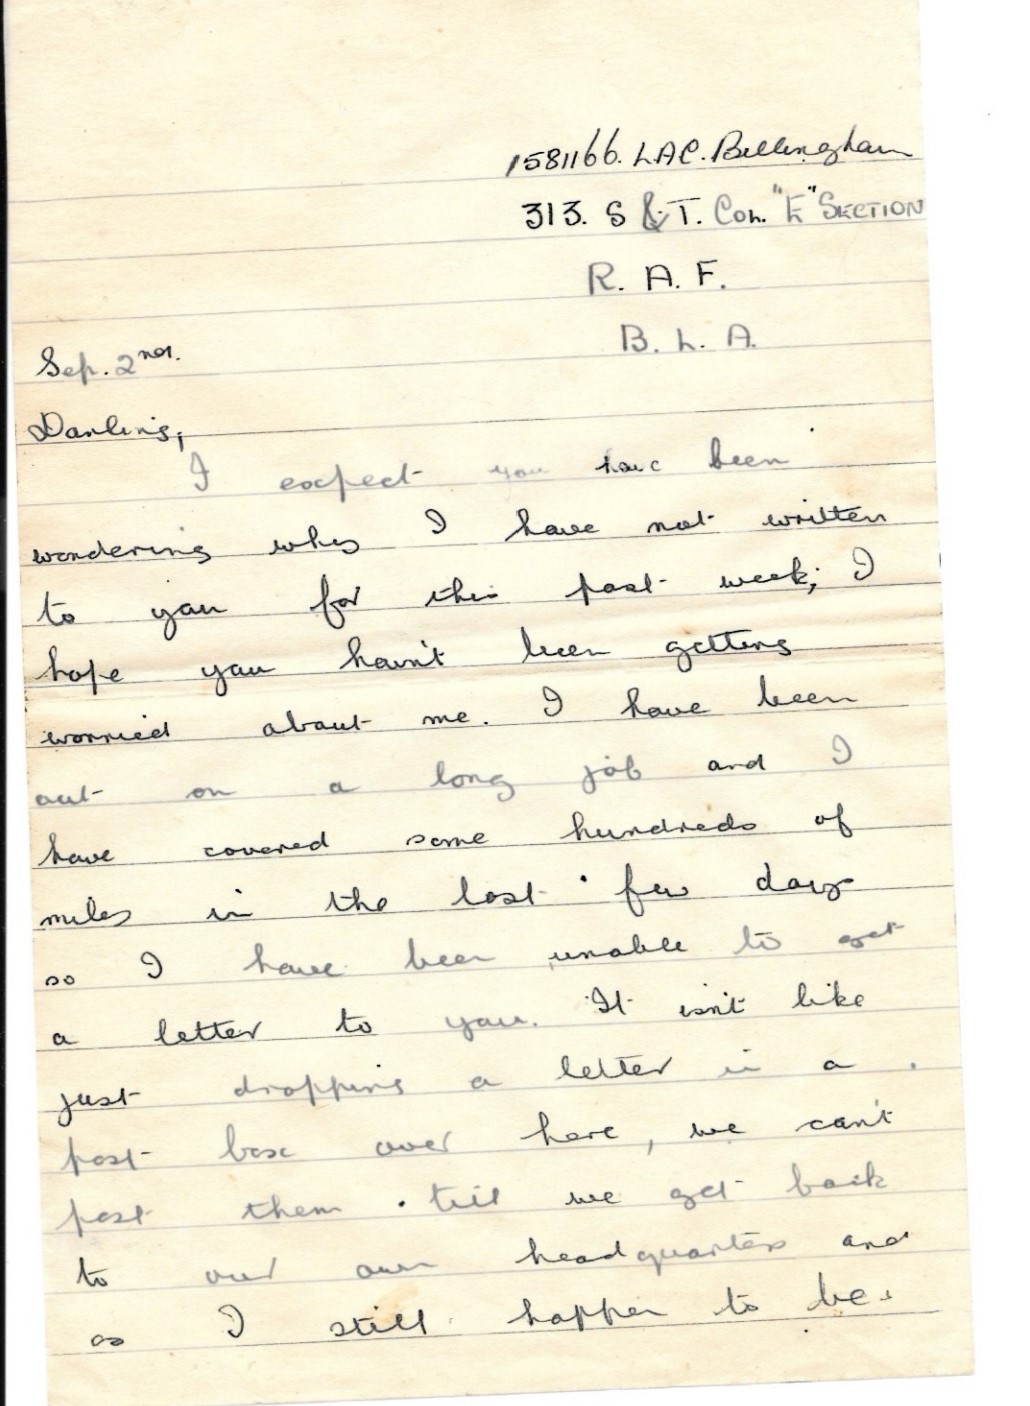 1581166. LAC. Billingham
313. S & T. Col. "E" SECTION
R. A. F.
B. L. A.
Sep. 2nd.
Darling,
I expect you have been
wondering why I have not written
to you for this past week; I
hope you havn't been getting
worried about me. I have been
out on a long job and I
have covered some hundreds of
miles in the last few days
so I have been unable to get
a letter to you. It isn't like
just dropping a letter in a
post box over here, we can't
post them till we get back
to our own headquarters and
as I still happen to be